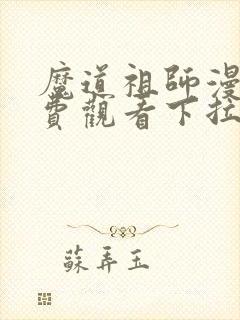 魔道祖師漫
費觀看下拉
蘇弄玉